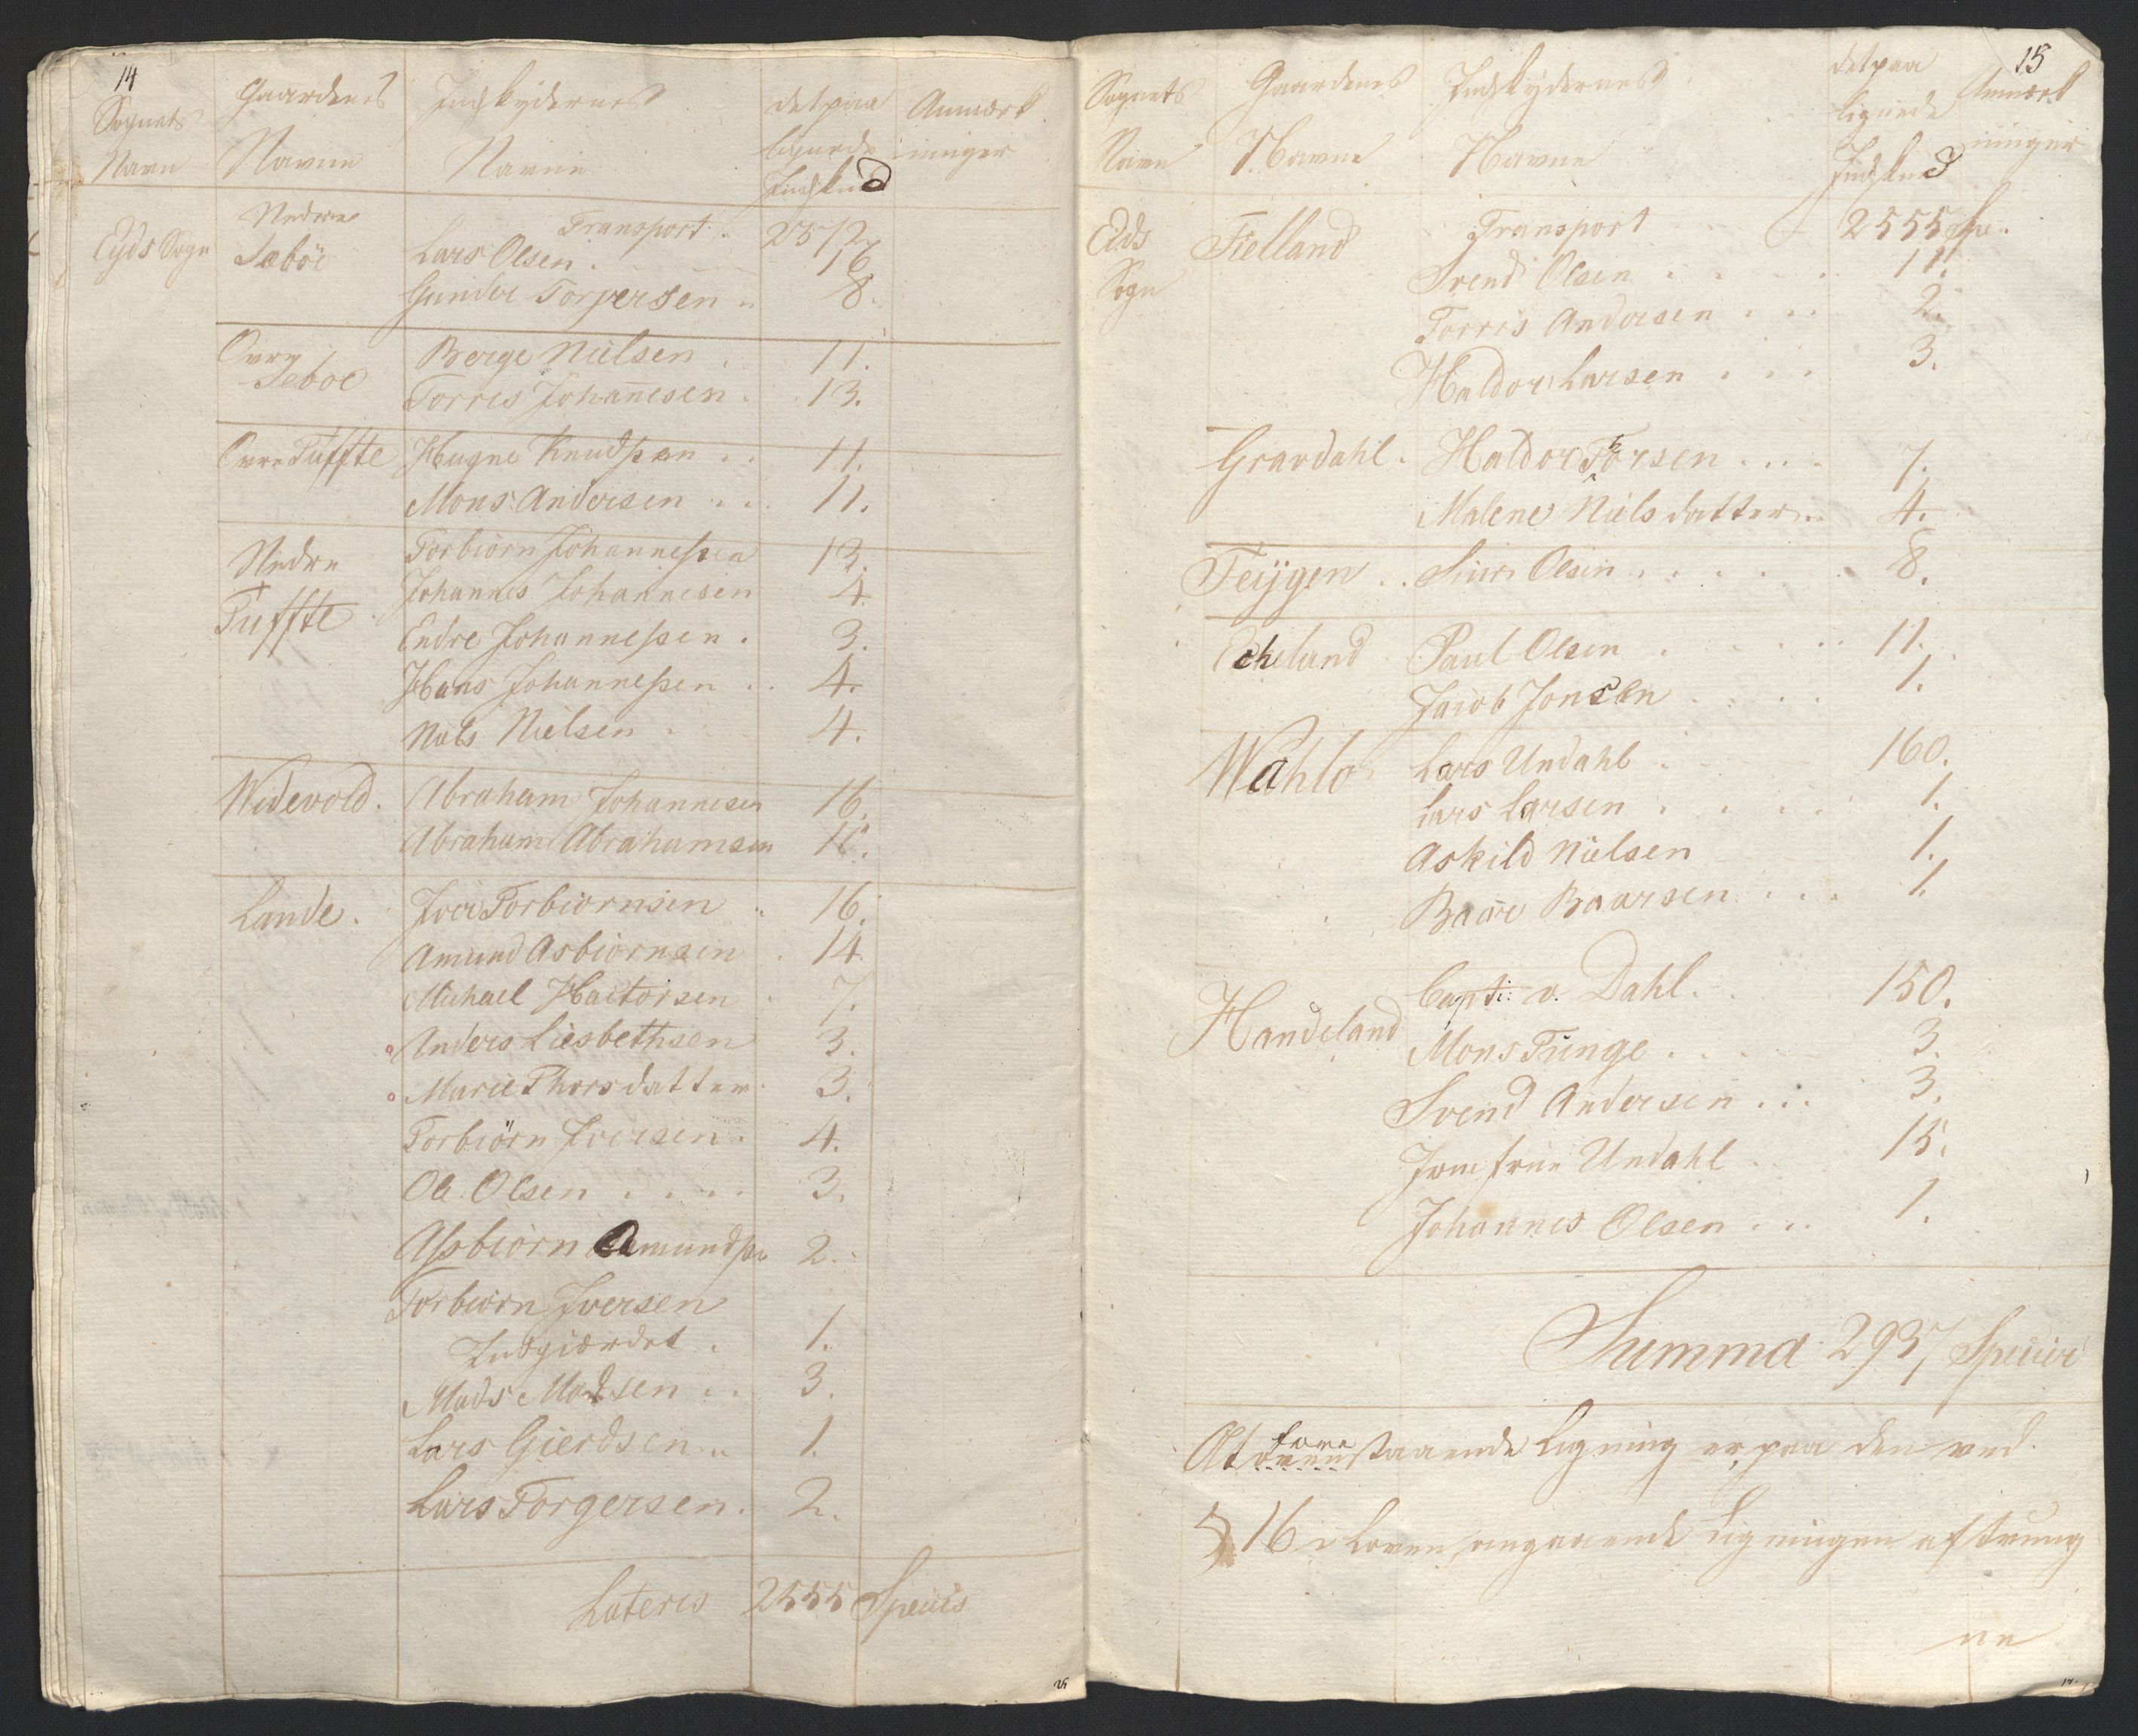 14
Sognets Navn | Gaardenes Navne | Indskydernes Navne | det paa lignede Indskud | Anmærkninger
Eyds Sogn | Nedere Sæböe | Transport | 2372
Lars Olsen | 16
Gunder Torgersen | 8.
Övre Seboe | Berge Nielsen | 11.
Torres Johannesen | 13.
Övre Tuffte | Haagne Knudssen | 11.
Mons Andersen | 11.
Nedre Tuffte | Torbiörn Johannessen | 13.
Johannes Johannesen | 4.
Endre Johannessen | 3.
Hans Johannessen | 4.
Niels Nielsen | 4.
Widevold | Abraham Johannesen | 16.
Abraham Abrahamsen | 11.
Lande | Iver Torbiörnsen | 16.
Amund Asbiörnsen | 14.
Michael Hactorsen | 7.
Anders Liesbethsen | 3.
Marie Thorsdatter | 3.
Torbiörn Iversen | 4.
Ole Olsen | 3.
Assbiörn Amundss | 2.
Torbiörn Iversen
Indgiærdet | 1.
Mads Madsen | 3.
Lars Gierdsen | 1.
Lars Torgersen | 2.
Lateris | 2555 Specis
15
Sognets Navn | Gaardenes Navne | Indskydernes Navne | det paa lignede Indskud | Anmærkninger
Eids Sogn | Fielland | Transport | 2555 Spe.
Svend Olsen | 11.
Torris Andersen | 2.
Haldor Larsen | 3.
Gravdahl | Haldor Torsen | 7.
Malene Nielsdatter | 4.
Feÿgen | Siur Olsen | 8.
Echeland | Paul Olsen | 11.
Jacob Jonsen | 1.
Wahlo | Lars Undahl | 160.
Lars Larsen | 1.
Askild Nielsen | 1.
Baar Baarsen | 1.
Handeland | Capt: v. Dahl | 150.
Mons Tunge | 3.
Svend Andersen | 3.
Jomfrue Undahl | 15.
Johannes Olsen | 1.
Summa 2937 Specier
At ovenstaaende fore Ligning er paa den ved
§ 16 i Loven angaaende Ligningen afstrung
ne